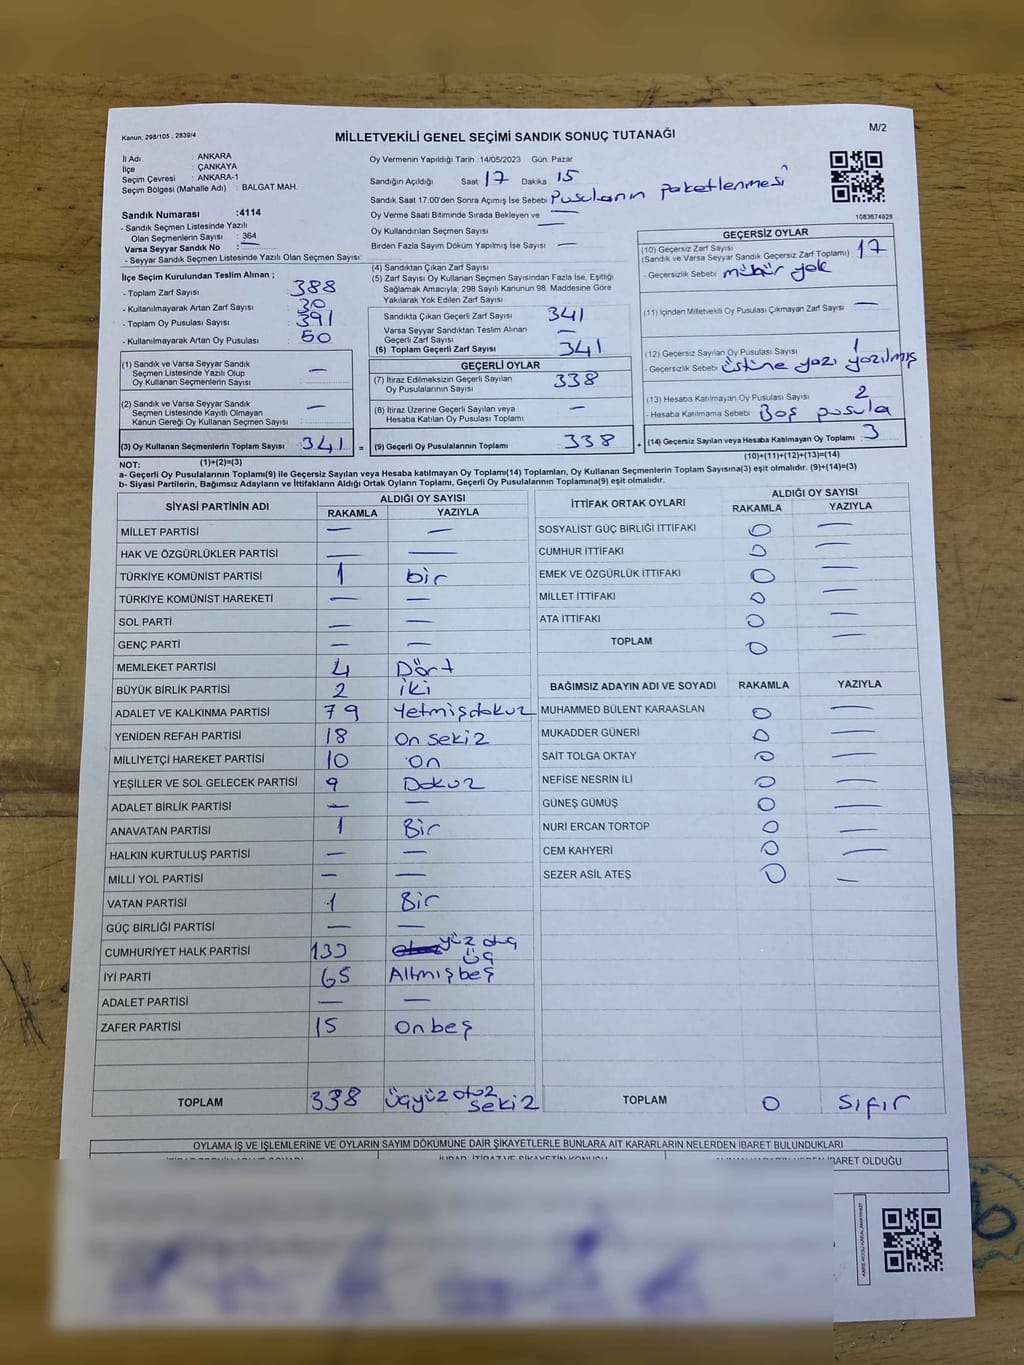 Kanun; 298/105 , 2839/4
MİLLETVEKİLİ GENEL SEÇİMİ SANDIK SONUÇ TUTANAĞI
M/2
İl Adı : ANKARA
İlçe : ÇANKAYA
Seçim Çevresi : ANKARA-1
Seçim Bölgesi (Mahalle Adı) : BALGAT MAH.
Oy Vermenin Yapıldığı Tarih :14/05/2023 Gün: Pazar
Sandığın Açıldığı Saat: 17 Dakika 15
Sandık Saat 17.00'den Sonra Açımış İse Sebebi Pusulanın paketlenmesi
Oy Verme Saati Bitiminde Sırada Bekleyen ve —
Oy Kullandırılan Seçmen Sayısı
Birden Fazla Sayım Döküm Yapılmış İse Sayısı —
1083674928
Sandık Numarası :4114
- Sandık Seçmen Listesinde Yazılı
Olan Seçmenlerin Sayısı : 364
Varsa Seyyar Sandık No : —
- Seyyar Sandık Seçmen Listesinde Yazılı Olan Seçmen Sayısı:
İlçe Seçim Kurulundan Teslim Alınan ;
- Toplam Zarf Sayısı : 388
- Kullanılmayarak Artan Zarf Sayısı : 30
- Toplam Oy Pusulası Sayısı : 391
- Kullanılmayarak Artan Oy Pusulası : 50
(1) Sandık ve Varsa Seyyar Sandık
Seçmen Listesinde Yazılı Olup
Oy Kullanan Seçmenlerin Sayısı : —
(2) Sandık ve Varsa Seyyar Sandık
Seçmen Listesinde Kayıtlı Olmayan
Kanun Gereği Oy Kullanan Seçmen Sayısı : —
(3) Oy Kullanan Seçmenlerin Toplam Sayısı : 341 =
(1)+(2)=(3)
(4) Sandıktan Çıkan Zarf Sayısı
(5) Zarf Sayısı Oy Kullanan Seçmen Sayısından Fazla İse, Eşitliği
Sağlamak Amacıyla; 298 Sayılı Kanunun 98. Maddesine Göre
Yakılarak Yok Edilen Zarf Sayısı
Sandıkta Çıkan Geçerli Zarf Sayısı 341
Varsa Seyyar Sandıktan Teslim Alınan
Geçerli Zarf Sayısı —
(6) Toplam Geçerli Zarf Sayısı 341
GEÇERLİ OYLAR
(7) İtiraz Edilmeksizin Geçerli Sayılan
Oy Pusulalarının Sayısı 338
(8) İtiraz Üzerine Geçerli Sayılan veya
Hesaba Katılan Oy Pusulası Toplamı —
(9) Geçerli Oy Pusulalarının Toplamı 338 +
GEÇERSİZ OYLAR
(10) Geçersiz Zarf Sayısı
(Sandık ve Varsa Seyyar Sandık Geçersiz Zarf Toplamı) 17
- Geçersizlik Sebebi mühür yok
(11) İçinden Milletvekili Oy Pusulası Çıkmayan Zarf Sayısı —
(12) Geçersiz Sayılan Oy Pusulası Sayısı 1
- Geçersizlik Sebebi üstüne yazı yazılmış
(13) Hesaba Katılmayan Oy Pusulası Sayısı 2
- Hesaba Katılmama Sebebi Boş pusula
(14) Geçersiz Sayılan veya Hesaba Katılmayan Oy Toplamı 3
(10)+(11)+(12)+(13)=(14)
NOT:
a- Geçerli Oy Pusulalarının Toplamı(9) ile Geçersiz Sayılan veya Hesaba katılmayan Oy Toplamı(14) Toplamları, Oy Kullanan Seçmenlerin Toplam Sayısına(3) eşit olmalıdır. (9)+(14)=(3)
b- Siyasi Partilerin, Bağımsız Adayların ve İttifakların Aldığı Ortak Oyların Toplamı, Geçerli Oy Pusulalarının Toplamına(9) eşit olmalıdır.
SİYASİ PARTİNİN ADI ALDIĞI OY SAYISI
RAKAMLA YAZIYLA
MİLLET PARTİSİ — —
HAK VE ÖZGÜRLÜKLER PARTİSİ — —
TÜRKİYE KOMÜNİST PARTİSİ 1 bir
TÜRKİYE KOMÜNİST HAREKETİ — —
SOL PARTİ — —
GENÇ PARTİ — —
MEMLEKET PARTİSİ 4 Dört
BÜYÜK BİRLİK PARTİSİ 2 iki
ADALET VE KALKINMA PARTİSİ 79 Yetmişdokuz
YENİDEN REFAH PARTİSİ 18 On sekiz
MİLLİYETÇİ HAREKET PARTİSİ 10 on
YEŞİLLER VE SOL GELECEK PARTİSİ 9 Dokuz
ADALET BİRLİK PARTİSİ — —
ANAVATAN PARTİSİ 1 Bir
HALKIN KURTULUŞ PARTİSİ — —
MİLLİ YOL PARTİSİ — —
VATAN PARTİSİ 1 Bir
GÜÇ BİRLİĞİ PARTİSİ — —
CUMHURİYET HALK PARTİSİ 133 yüz otuz üç
İYİ PARTİ 65 Altmışbeş
ADALET PARTİSİ — —
ZAFER PARTİSİ 15 Onbeş
TOPLAM 338 üçyüz otuz sekiz
İTTİFAK ORTAK OYLARI ALDIĞI OY SAYISI
RAKAMLA YAZIYLA
SOSYALİST GÜÇ BİRLİĞİ İTTİFAKI 0 —
CUMHUR İTTİFAKI 0 —
EMEK VE ÖZGÜRLÜK İTTİFAKI 0 —
MİLLET İTTİFAKI 0 —
ATA İTTİFAKI 0 —
TOPLAM 0 —
BAĞIMSIZ ADAYIN ADI VE SOYADI RAKAMLA YAZIYLA
MUHAMMED BÜLENT KARAASLAN 0 —
MUKADDER GÜNERİ 0 —
SAİT TOLGA OKTAY 0 —
NEFİSE NESRİN İLİ 0 —
GÜNEŞ GÜMÜŞ 0 —
NURİ ERCAN TORTOP 0 —
CEM KAHYERİ 0 —
SEZER ASİL ATEŞ 0 —
TOPLAM 0 Sıfır
OYLAMA İŞ VE İŞLEMLERİNE VE OYLARIN SAYIM DÖKÜMÜNE DAİR ŞİKAYETLERLE BUNLARA AİT KARARLARIN NELERDEN İBARET BULUNDUKLARI